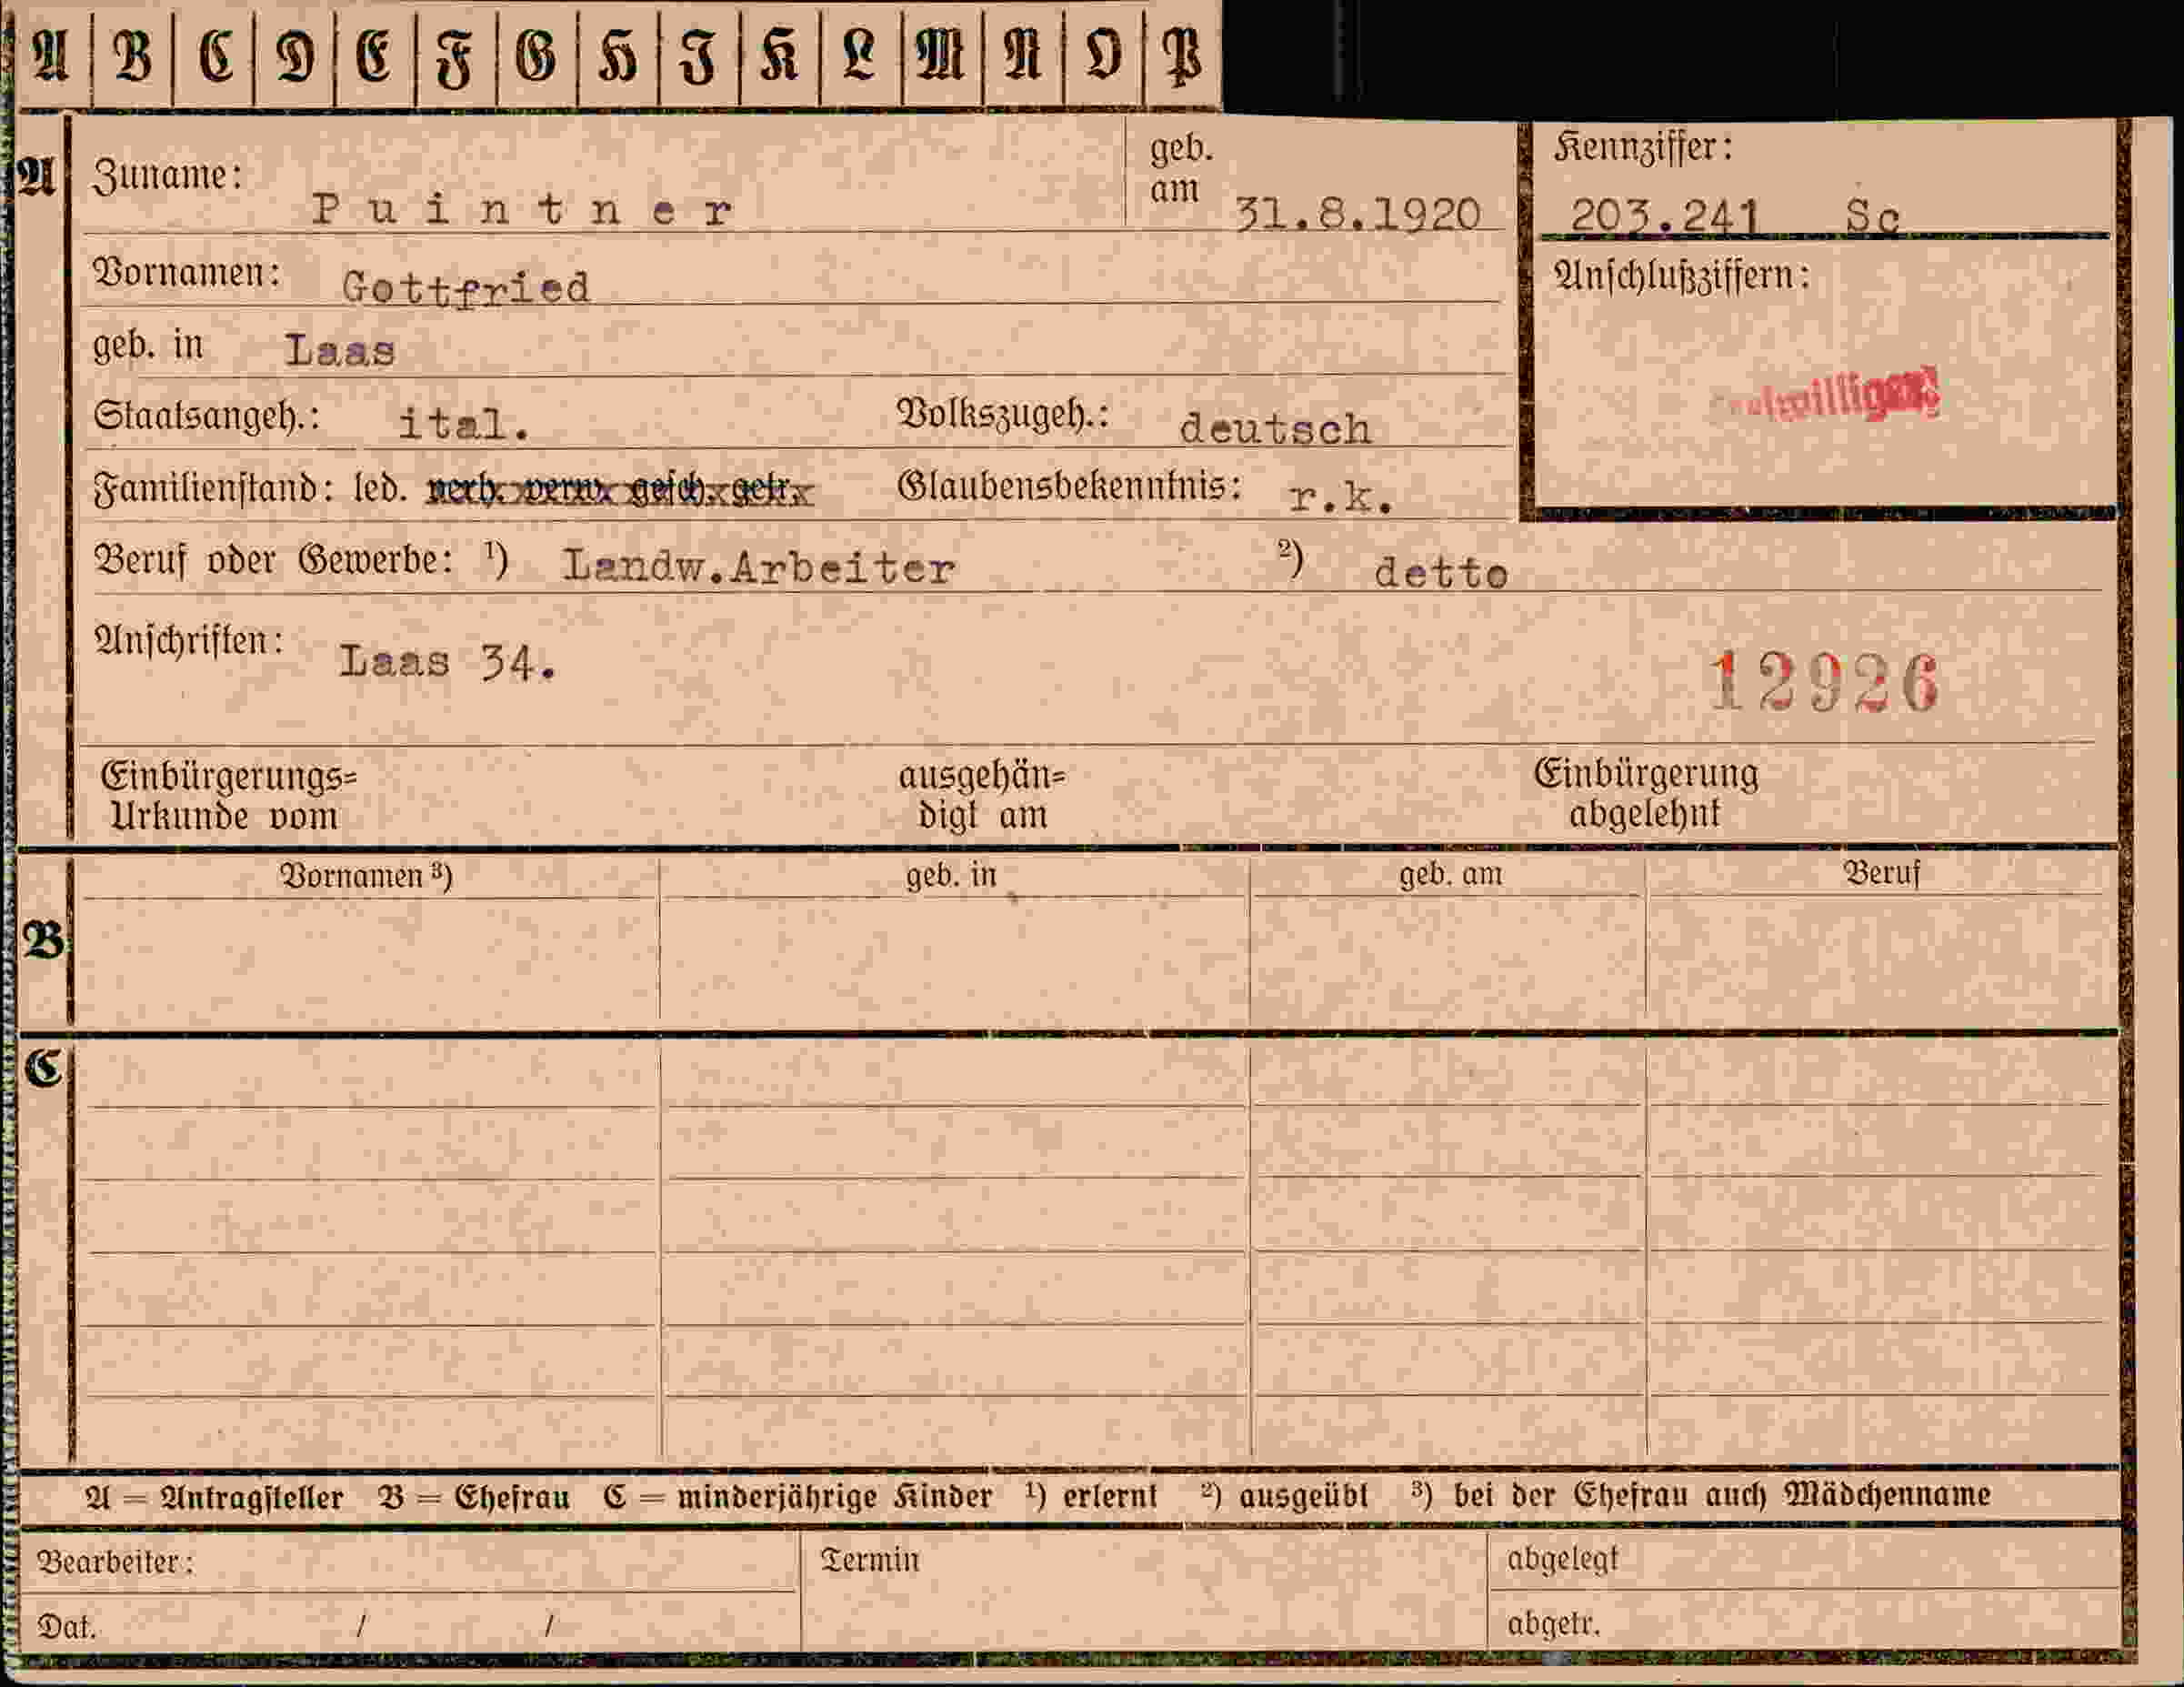 A B C D E F G H I K L M N O P
A Zuname: Puintner geb. am 31.8.1920 Kennziffer: 203.241 Sc
Vornamen: Gottfried Anschlußziffern:
geb. in Laas
Staatsangeh.: ital. Volkszugeh.: deutsch
Familienstand: led. verh. verw. gesch. getr. Glaubensbekenntnis: r.k.
Beruf oder Gewerbe: ¹) Landw.Arbeiter ²) detto
Anschriften: Laas 34. 12926
Einbürgerungs= ausgehän= Einbürgerung
Urkunde vom digt am abgelehnt
Vornamen ³) geb. in geb. am Beruf
B
C
A = Antragsteller B = Ehefrau C = minderjährige Kinder ¹) erlernt ²) ausgeübt ³) bei der Ehefrau auch Mädchenname
Bearbeiter: Termin abgelegt
Dat. / / abgetr.